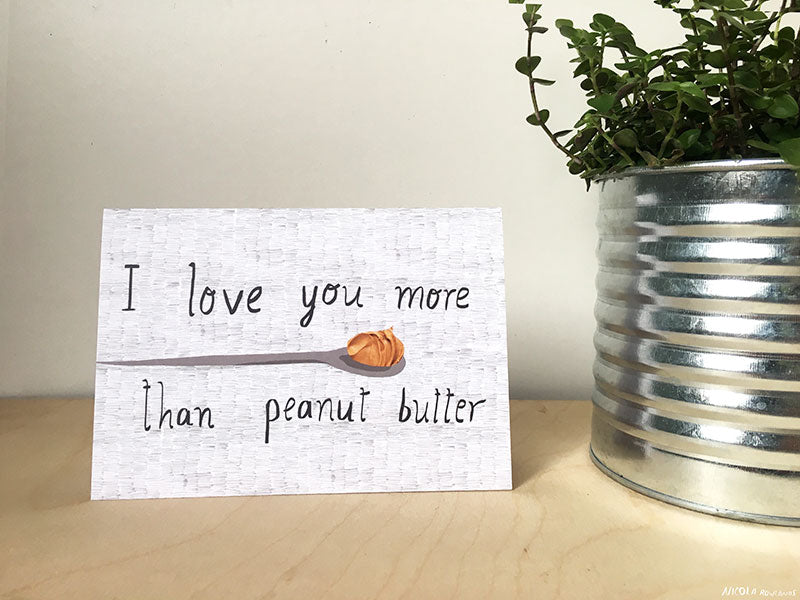 I love you more
than peanut butter
NICOLA ROWLANDS